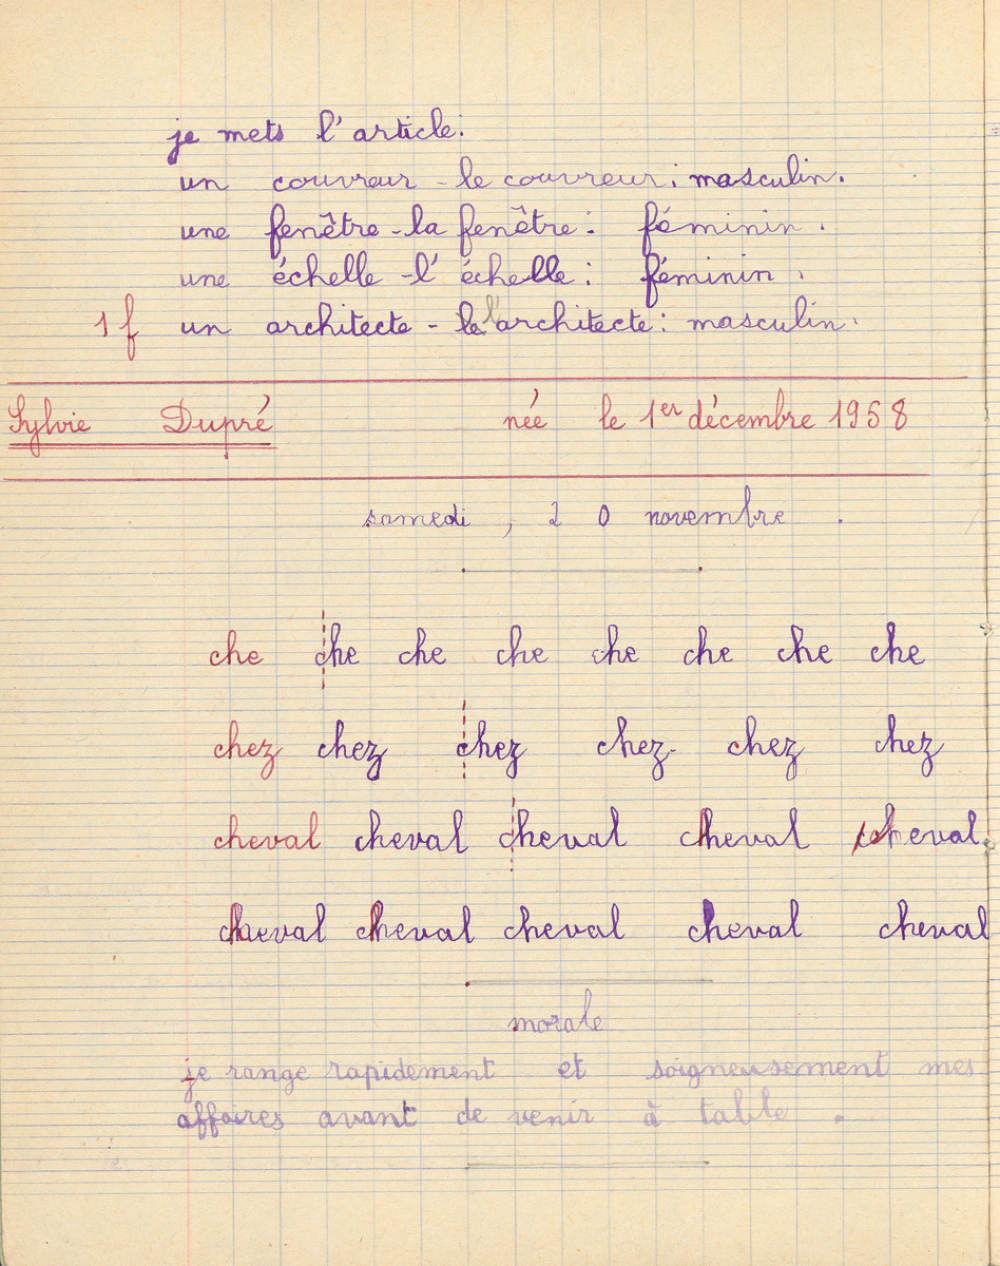 je mets l'article:
un couvreur - le couvreur: masculin.
une fenêtre - la fenêtre: féminin.
une échelle - l'échelle: féminin.
1 f un architecte - le l'architecte: masculin.
Sylvie Dupré née le 1er décembre 1958
samedi, 20 novembre.
che che che che che che che che
chez chez chez chez chez chez
cheval cheval cheval cheval cheval
cheval cheval cheval cheval cheval
morale
je range rapidement et soigneusement mes
affaires avant de venir à table.